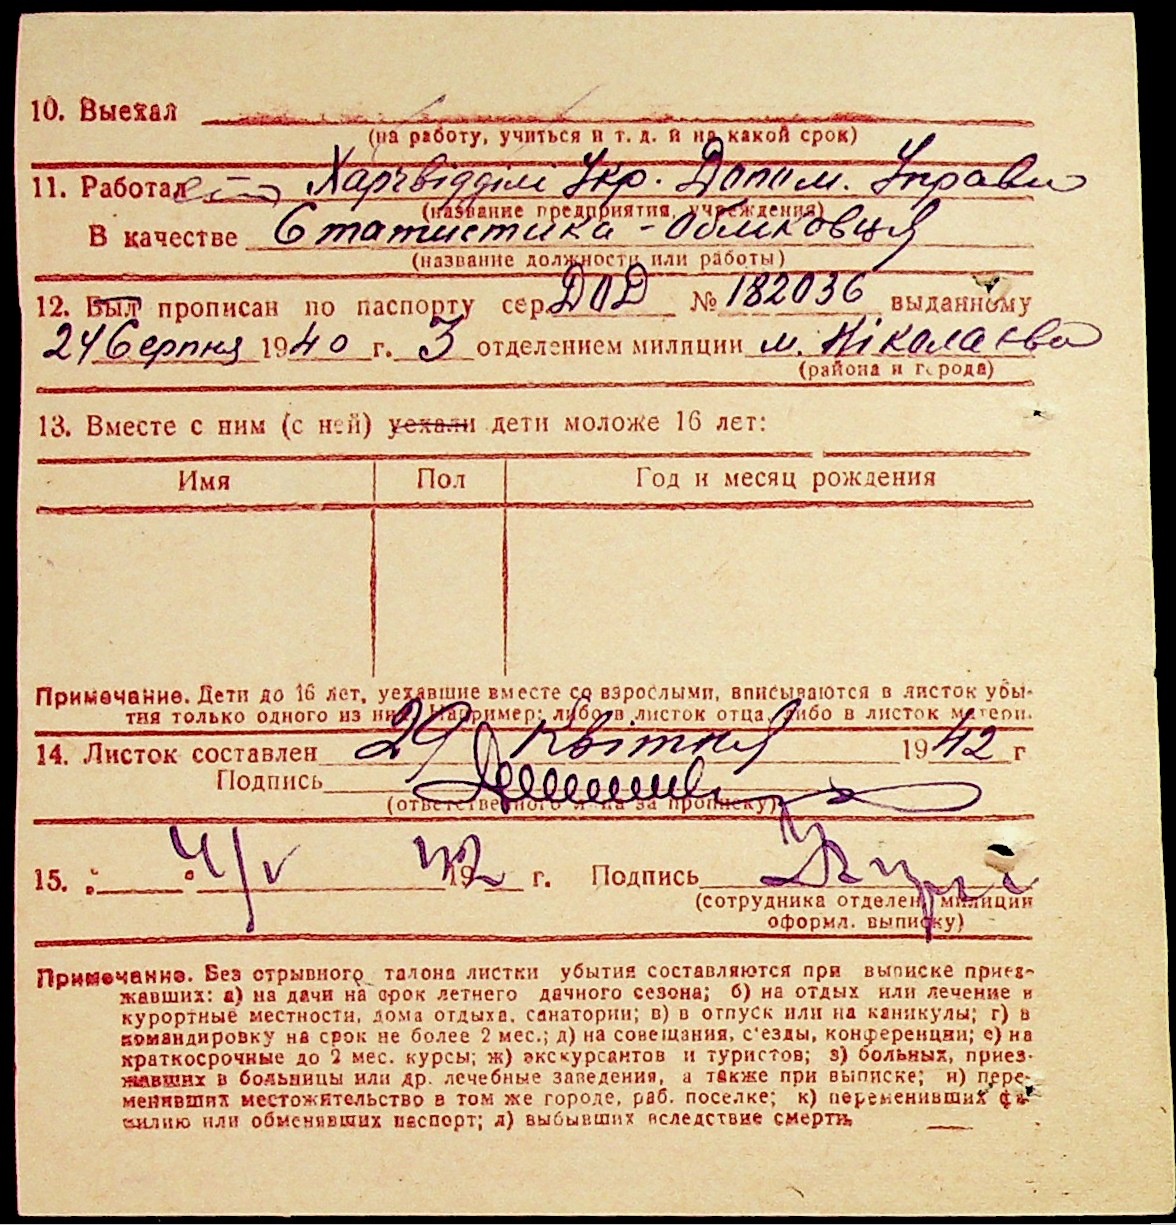 10. Выехал
(на работу, учиться и т. д. и на какой срок)
11. Работает Харчвідділі Укр. Допом. Управи
(название предприятия, учреждения)
В качестве Статистика-Обліковця
(название должности или работы)
12. Был прописан по паспорту сер. ДОД № 182036 выданному
24 Серпня 1940 г. 3 отделением милиции м. Ніколаєва
(района и города)
13. Вместе с ним (с ней) уехали дети моложе 16 лет:
Имя Пол Год и месяц рождения
Примечание. Дети до 16 лет, уехавшие вместе со взрослыми, вписываются в листок убы-
тия только одного из них. Например: либо в листок отца, либо в листок матери.
14. Листок составлен 29 Квітня 1942 г
Подпись
(ответственного лица за прописку)
15. 4/V 1942 г. Подпись
(сотрудника отделен. милиции
оформл. выписку)
Примечание. Без отрывного талона листки убытия составляются при выписке приез-
жавших: а) на дачи на срок летнего дачного сезона; б) на отдых или лечение в
курортные местности, дома отдыха, санатории; в) в отпуск или на каникулы; г) в
командировку на срок не более 2 мес.; д) на совещания, с'езды, конференции; е) на
краткосрочные до 2 мес. курсы; ж) экскурсантов и туристов; з) больных, приез-
жавших в больницы или др. лечебные заведения, а также при выписке; и) пере-
менивших местожительство в том же городе, раб. поселке; к) переменивших фа-
милию или обменявших паспорт; л) выбывших вследствие смерти.